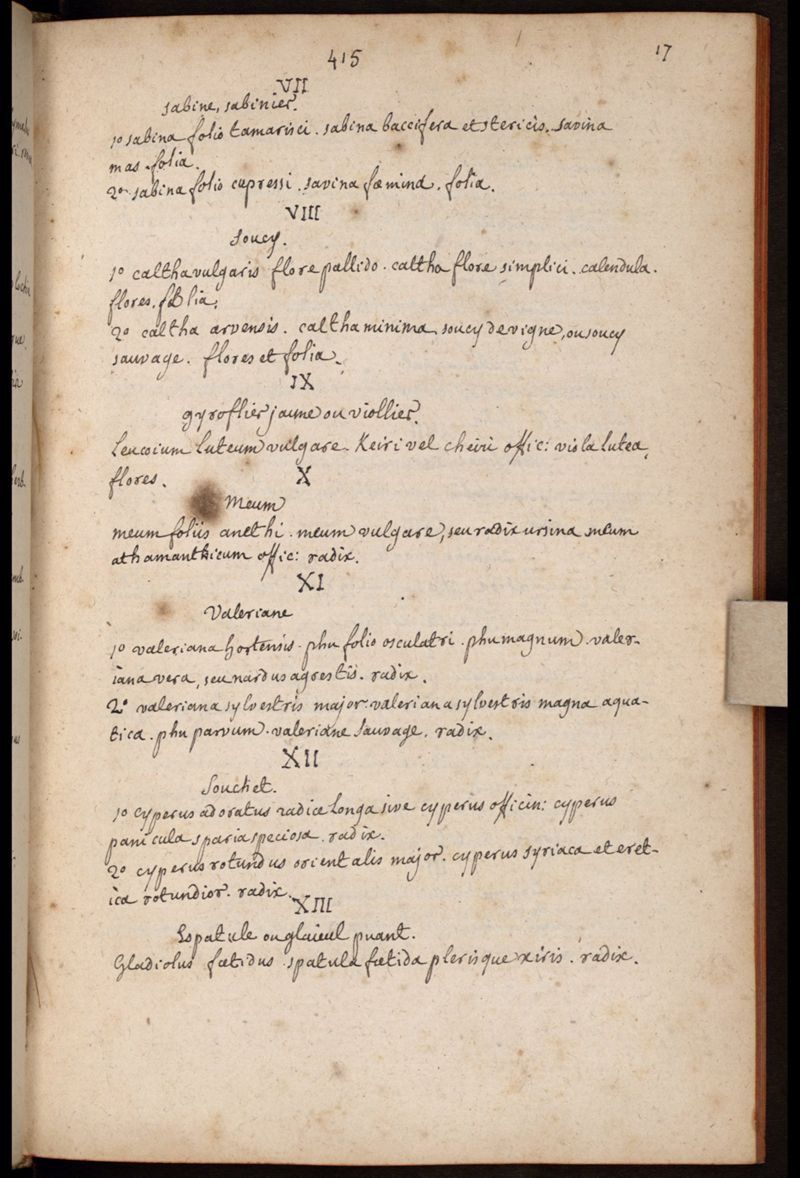 415
17
VII
sabine, sabinier.
1º sabina folio tamarisci. sabina baccifera et sterilis. savina
mas. folia.
2º sabina folio cupressi. savina fœmina. folia.
VIII
soucy.
1º caltha vulgaris flore pallido. caltha flore simplici. calendula.
flores. folia.
2º caltha arvensis. caltha minima, soucy de vigne, ou soucy
sauvage. flores et folia.
IX
gyroflier jaune ou viollier.
Leucoium luteum vulgare. Keiri vel cheiri offic: viola lutea,
flores.
X
Meum
meum foliis anethi. meum vulgare, seu radix ursina meum
athamanthicum offic: radix.
XI
Valeriane
1º valeriana hortensis. phu folio osculatri. phu magnum. valer-
iana vera, seu nardus agrestis. radix.
2º valeriana sylvestris major. valeriana sylvestris magna aqua-
tica. phu parvum. valeriane sauvage. radix.
XII
Souchet.
1º cyperus adoratus radice longa sive cyperus officin: cyperus
panicula sparia speciosa. radix.
2º cyperus rotundus orientalis major. cyperus syriaca et eret-
ica rotundior. radix.
XIII
Espatule ou glaieul puant.
Gladiolus fœtidus. spatula fœtida plerisque xiris. radix.